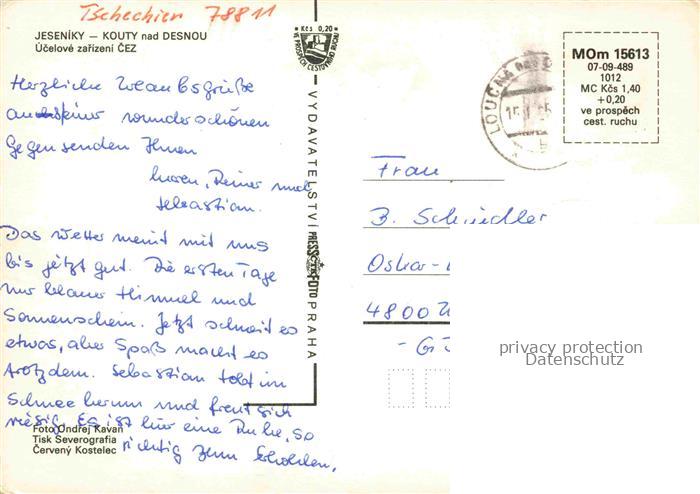 Tschechien 78811
JESENÍKY — KOUTY nad DESNOU
Účelové zařízení ČEZ
Kčs 0,20
VE PROSPĚCH CESTOVNÍHO RUCHU
MOm 15613
07-09-489
1012
MC Kčs 1,40
+0,20
ve prospěch
cest. ruchu
LOUČNÁ nad D
Herzliche Urlaubsgrüße
aus einer wunderschönen
Gegend senden Ihnen
Rainer und
Sebastian.
Das Wetter meint mit uns
bis jetzt gut. Die ersten Tage
nur blauer Himmel und
Sonnenschein. Jetzt schneit es
etwas, aber Spaß macht es
trotzdem. Sebastian tobt im
Schnee herum und freut sich
riesig. Es ist hier eine Ruhe, so
richtig zum Erholen.
VYDAVATELSTVÍ PRESSFOTO PRAHA
Frau
B. Schindler
Oskar-
4800
privacy protection
Datenschutz
Foto Ondřej Kavan
Tisk Severografia
Červený Kostelec